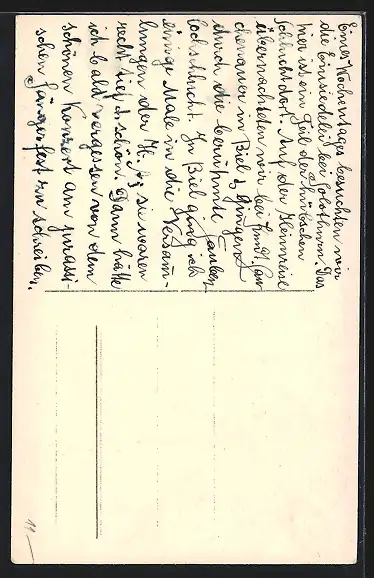 Eines Wochentages besuchten wir
die Einsiedelei bei Solothurn. Das
hier ist ein Teil der hübschen
Schlucht dort. Auf der Heimreise
übernachteten wir bei Fam. 
in Biel & gingen
durch die berühmte Tauben-
lochschlucht. In Biel ging ich
einige Male in die Versam-
lungen der H. sie waren
recht tief & schön. Dann hätte
ich bald vergessen von dem
schönen Konzert am jurassi-
schen Sängerfest zu schreiben.
11